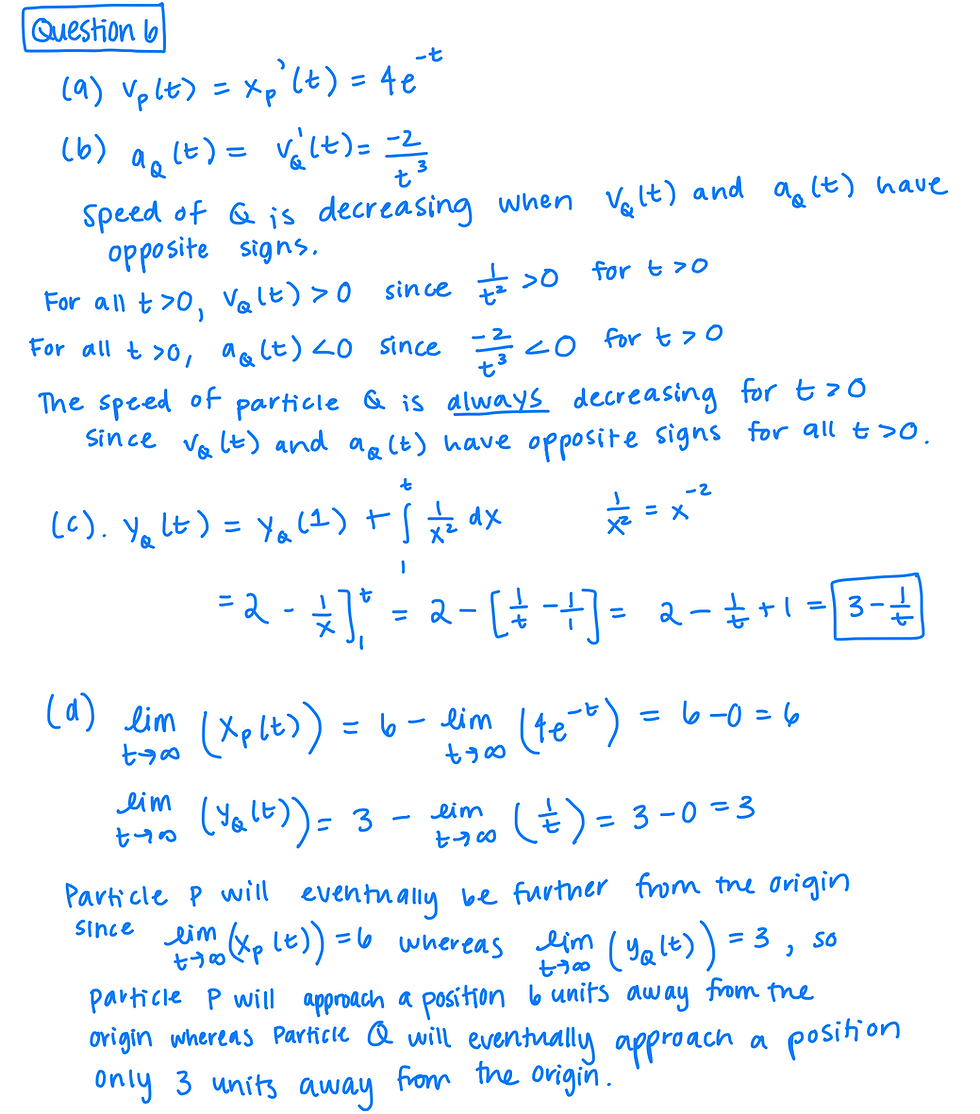 Question 6
(a) v_P(t) = x_P'(t) = 4e^{-t}
(b) a_Q(t) = v_Q'(t) = \frac{-2}{t^3}
Speed of Q is decreasing when v_Q(t) and a_Q(t) have
opposite signs.
For all t>0, v_Q(t) > 0 since \frac{1}{t^2} > 0 for t > 0
For all t >0, a_Q(t) < 0 since \frac{-2}{t^3} < 0 for t > 0
The speed of particle Q is always decreasing for t > 0
since v_Q(t) and a_Q(t) have opposite signs for all t >0.
(c). y_Q(t) = y_Q(1) + \int_1^t \frac{1}{x^2} dx \frac{1}{x^2} = x^{-2}
= 2 - \frac{1}{x}]_1^t = 2 - [\frac{1}{t} - \frac{1}{1}] = 2 - \frac{1}{t} + 1 = 3 - \frac{1}{t}
(d) lim_{t→∞} (x_P(t)) = 6 - lim_{t→∞} (4e^{-t}) = 6 - 0 = 6
lim_{t→∞} (y_Q(t)) = 3 - lim_{t→∞} (\frac{1}{t}) = 3 - 0 = 3
Particle P will eventually be further from the origin
since lim_{t→∞} (x_P(t)) = 6 whereas lim_{t→∞} (y_Q(t)) = 3, so
particle P will approach a position 6 units away from the
origin whereas Particle Q will eventually approach a position
only 3 units away from the origin.